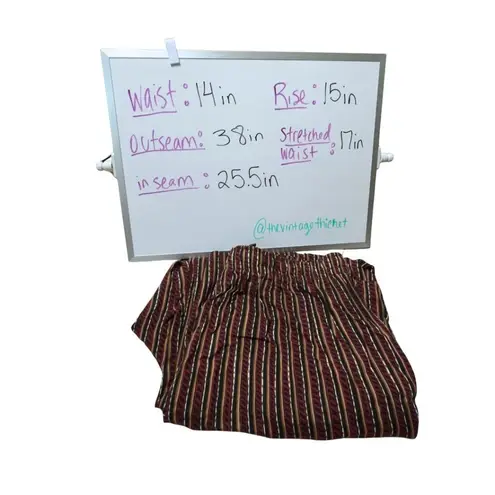 Waist: 14in
Rise: 15in
Outseam: 38in
Stretched waist: 17in
in seam: 25.5in
@thevintagethicket